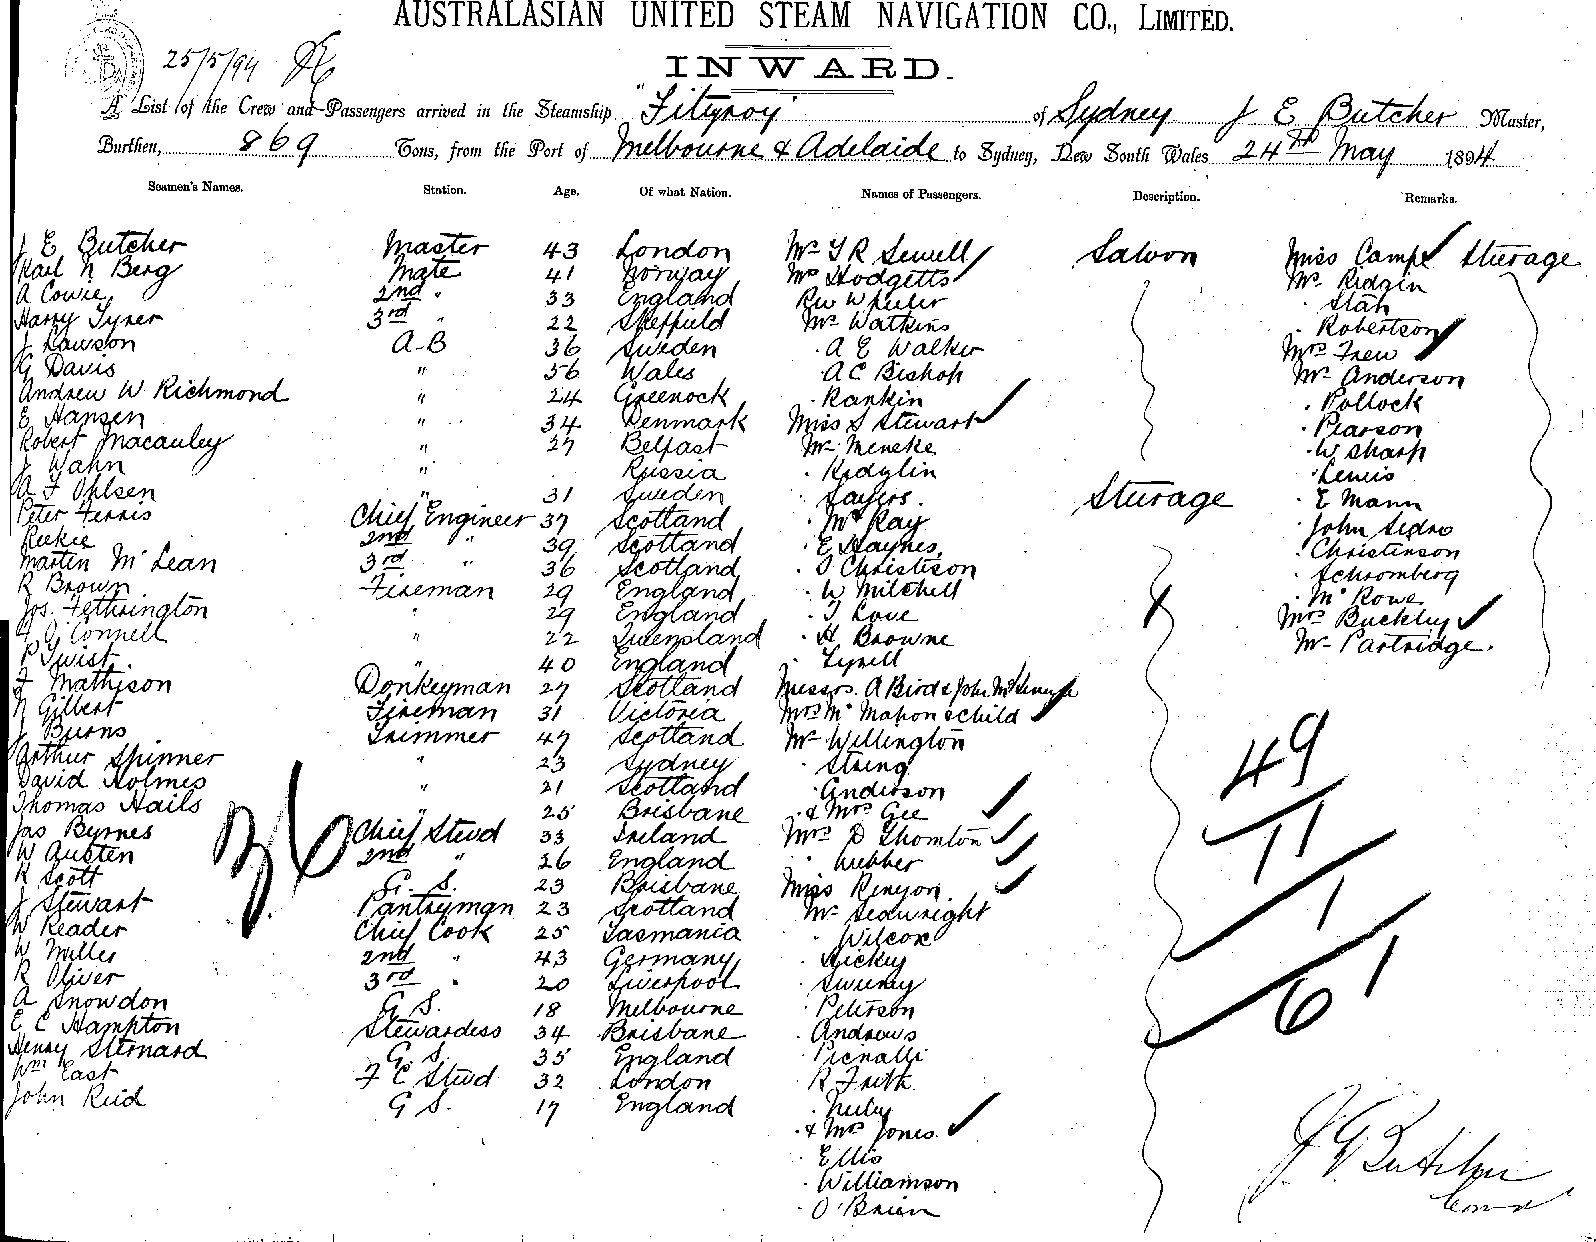 AUSTRALASIAN UNITED STEAM NAVIGATION CO., LIMITED.
25/5/94
INWARD.
A List of the Crew and Passengers arrived in the Steamship "Fitzroy" of Sydney J E Butcher Master,
Burthen, 869 Tons, from the Port of Melbourne & Adelaide to Sydney, New South Wales 24th May 1894
Seamen's Names. Station. Age. Of what Nation. Names of Passengers. Description. Remarks.
J E Butcher Master 43 London Mr T R Sewell Saloon Miss Camp Sturage
Karl N Berg Mate 41 Norway Mrs Hodgetts Mr Ridgin
A Cowie 2nd " 33 England Rev Wheeler
Harry Tyrer 3rd " 22 Sheffield Mr Watkins · Robertson
J Lawson A-B 36 Sweden · A E Walker Mrs Frew
G Davis " 56 Wales · A C Bishop Mr Anderson
Andrew W Richmond " 24 Greenock · Rankin · Pollock
E Hansen " 34 Denmark Miss S Stewart · Pearson
Robert Macauley " 27 Belfast Mr Meneke · W Sharp
J Wahn " Russia · Kidglin · Lewis
A F Ohlsen " 31 Sweden · Sayers. Sturage · E Mann
Peter Ferris Chief Engineer 37 Scotland · McKay · John
Reekie 2nd " 39 Scotland · E Haynes · Christenson
Martin McLean 3rd " 36 Scotland · O Christison · Schromberg
R Brown Fireman 29 England · W Mitchell · McRowe
Jos. Fethrington " 29 England · T Love Mrs Buckley
O'Connell " 22 Queensland · H Browne Mr Partridge.
P Twist " 40 England · Tyrell
J Mathison Donkeyman 27 Scotland Messrs. A Bird & John
N Gilbert Fireman 31 Victoria Mrs McMahon & child
J Burns Trimmer 47 Scotland Mr Willington 49
Arthur Spinner " 23 Sydney · String
David Holmes " 21 Scotland · Anderson
Thomas Hails " 25 Brisbane · & Mrs Gee 11
Jas Byrnes 36 Chief Stewd 33 Ireland Mrs D Thornton
W Austen 2nd " 26 England · Webber
R Scott G. S. 23 Brisbane Miss Kenyon
J Stewart Pantryman 23 Scotland Mr Seawright 1
W Reader Chief Cook 25 Tasmania · Wilcox
W Miller 2nd " 43 Germany · Hickey
R Oliver 3rd " 20 Liverpool · Sweeney 61
A Snowdon G S. 18 Melbourne · Peterson
E C Hampton Stewardess 34 Brisbane · Andrews
Henry Sternard G. S. 35 England
Wm East F C Stewd 32 London · R Frith
John Reid G S. 17 England
· & Mrs Jones
· Ellis
· Williamson
· O'Brien
J E Butcher